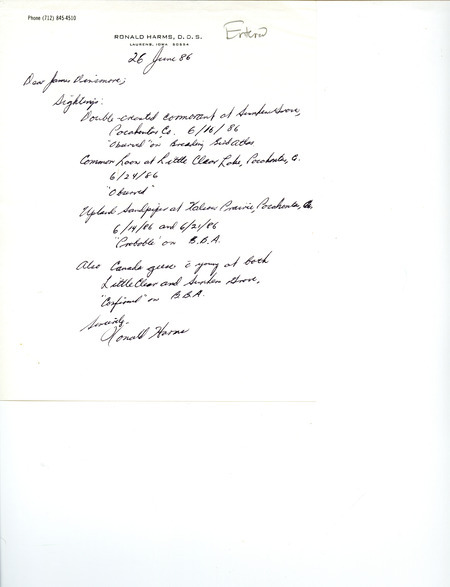 Phone (712) 845-4510
RONALD HARMS, D.D.S.
LAURENS, IOWA 50554
Entered
26 June 86
Dear James Dinsmore;
Sightings:
Double-crested cormorant at Sunken Grove,
Pocahontas Co. 6/16/86
"Observed" on Breeding Bird Atlas
Common Loon at Little Clear Lake, Pocahontas, Co.
6/24/86
"Observed"
Upland Sandpiper at Kalsow Prairie, Pocahontas, Co,
6/14/86 and 6/21/86
"Probable" on B.B.A.
Also Canada geese c young at both
Little Clear and Sunken Grove,
"Confirmed" on B.B.A.
Sincerely,
Ronald Harms